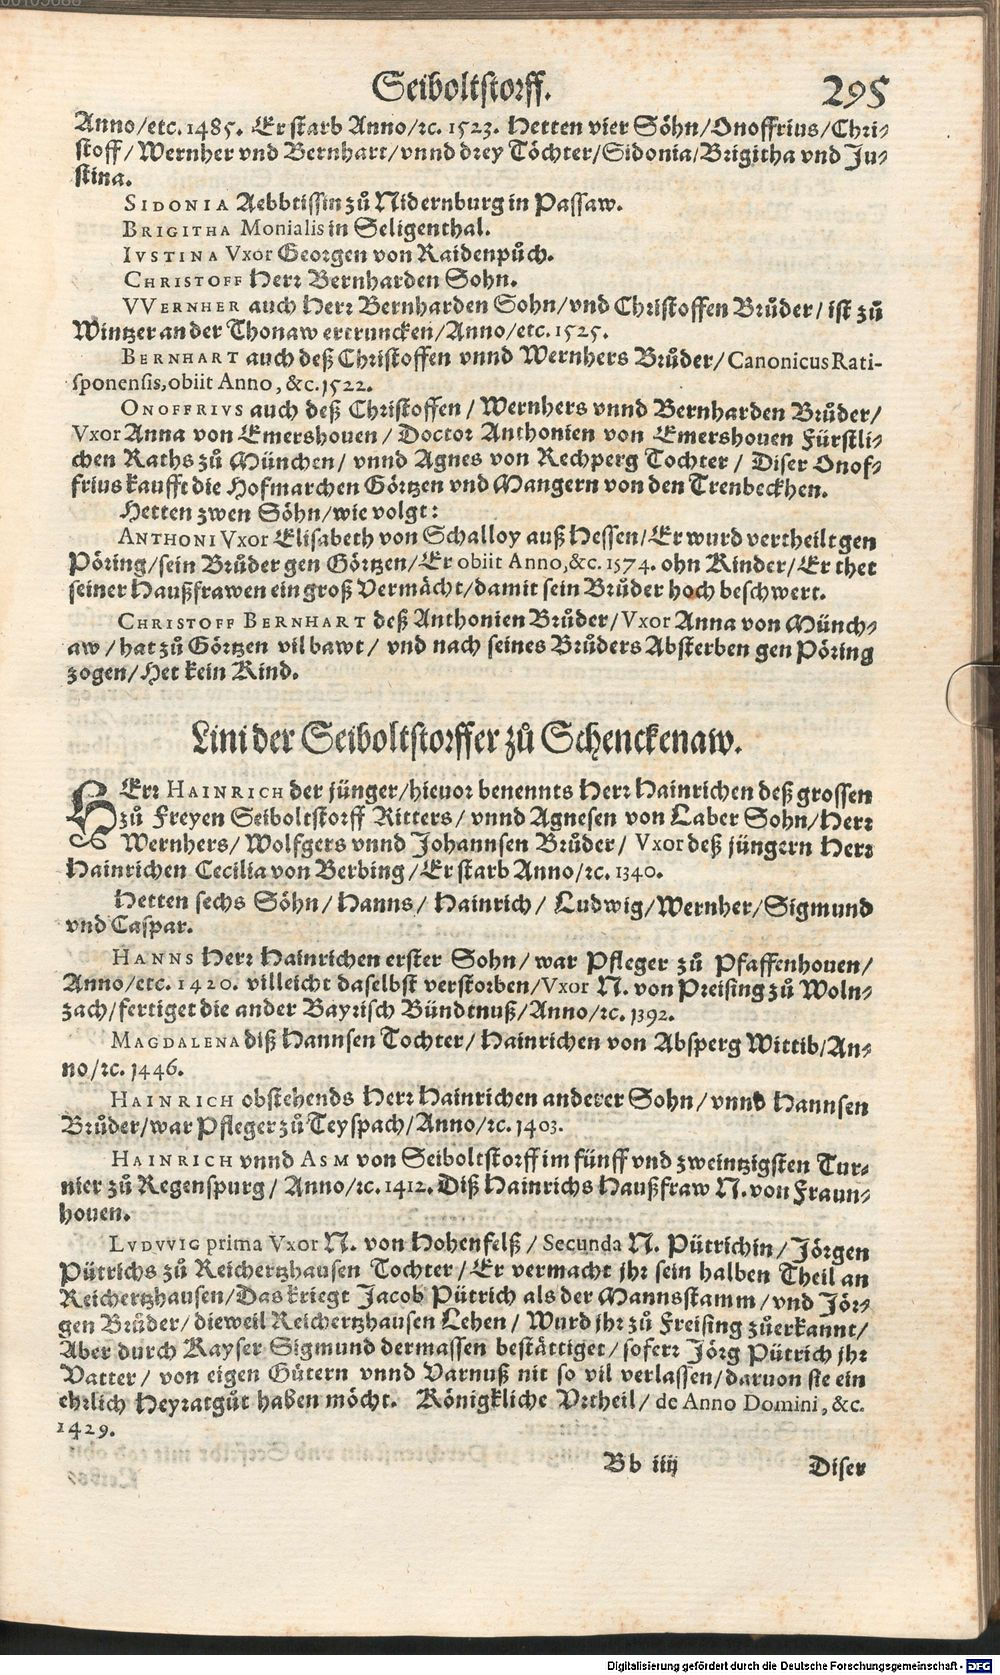 Seiboltstorff. 295
Anno/etc. 1485. Er starb Anno/ꝛc. 1523. Hetten vier Söhn/Onoffrius/Chri-
stoff/Wernher vnd Bernhart/vnnd drey Töchter/Sidonia/Brigitha vnd Ju-
stina.
SIDONIA Aebbtissin zů Nidernburg in Passaw.
BRIGITHA Monialis in Seligenthal.
IVSTINA Vxor Georgen von Raidenpůch.
CHRISTOFF Herr Bernharden Sohn.
VVERNHER auch Herr Bernharden Sohn/vnd Christoffen Brůder/ist zů
Wintzer an der Thonaw ertruncken/Anno/etc. 1525.
BERNHART auch deß Christoffen vnnd Wernhers Brůder/Canonicus Rati-
sponensis, obiit Anno, &c. 1522.
ONOFFRIVS auch deß Christoffen/Wernhers vnnd Bernharden Brůder/
Vxor Anna von Emershouen/Doctor Anthonien von Emershouen Fürstli-
chen Raths zů München/vnnd Agnes von Rechperg Tochter/Diser Onof-
frius kaufft die Hofmarchen Görtzen vnd Mangern von den Trenbeckhen.
Hetten zwen Söhn/wie volgt:
ANTHONI Vxor Elisabeth von Schalloy auß Hessen/Er wurd vertheilt gen
Pöring/sein Brůder gen Görtzen/Er obiit Anno, &c. 1574. ohn Kinder/Er thet
seiner Haußfrawen ein groß Vermächt/damit sein Brůder hoch beschwert.
CHRISTOFF BERNHART deß Anthonien Brůder/Vxor Anna von Münch-
aw/hat zů Görtzen vil bawt/vnd nach seines Brůders Absterben gen Pöring
zogen/Het kein Kind.
Lini der Seiboltstorffer zů Schenckenaw.
HErr HAINRICH der jünger/hieuor benennts Herr Hainrichen deß grossen
zů Freyen Seiboltstorff Ritters/vnnd Agnesen von Laber Sohn/Herr
Wernhers/Wolfgers vnnd Johannsen Brůder/Vxor deß jüngern Herr
Hainrichen Cecilia von Berbing/Er starb Anno/ꝛc. 1340.
Hetten sechs Söhn/Hanns/Hainrich/Ludwig/Wernher/Sigmund
vnd Caspar.
HANNS Herr Hainrichen erster Sohn/war Pfleger zů Pfaffenhouen/
Anno/etc. 1420. villeicht daselbst verstorben/Vxor N. von Preising zů Woln-
zach/fertiget die ander Bayrisch Bündtnuß/Anno/ꝛc. 1392.
MAGDALENA diß Hannsen Tochter/Hainrichen von Absperg Wittib/An-
no/ꝛc. 1446.
HAINRICH obstehends Herr Hainrichen anderer Sohn/vnnd Hannsen
Brůder/war Pfleger zů Teyspach/Anno/ꝛc. 1403.
HAINRICH vnnd ASM von Seiboltstorff im fünff vnd zweintzigsten Tur-
nier zů Regenspurg/Anno/ꝛc. 1412. Diß Hainrichs Haußfraw N. von Fraun-
houen.
LVDVVIG prima Vxor N. von Hohenfelß/Secunda N. Pütrichin/Jörgen
Pütrichs zů Reichertzhausen Tochter/Er vermacht jhr sein halben Theil an
Reichertzhausen/Das kriegt Jacob Pütrich als der Mannsstamm/vnd Jör-
gen Brůder/dieweil Reichertzhausen Lehen/Wurd jhr zů Freising zůerkannt/
Aber durch Kayser Sigmund dermassen bestättiget/soferr Jörg Pütrich jhr
Vatter/von eigen Gütern vnnd Varnuß nit so vil verlassen/daruon sie ein
ehrlich Heyratgůt haben möcht. Königkliche Vrtheil/de Anno Domini, &c.
1429.
Bb iiij Diser
Digitalisierung gefördert durch die Deutsche Forschungsgemeinschaft - DFG